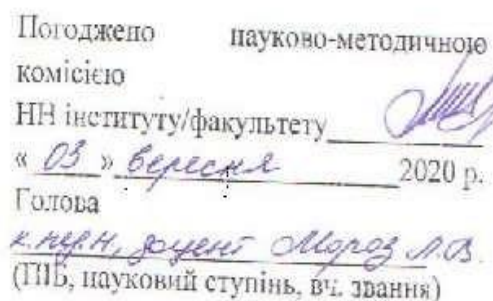 Погоджено науково-методичною
комісією
НН інституту/факультету
« 03 » вересня 2020 р.
Голова
доцент Мороз Л.В.
(ПІБ, науковий ступінь, вч. звання)